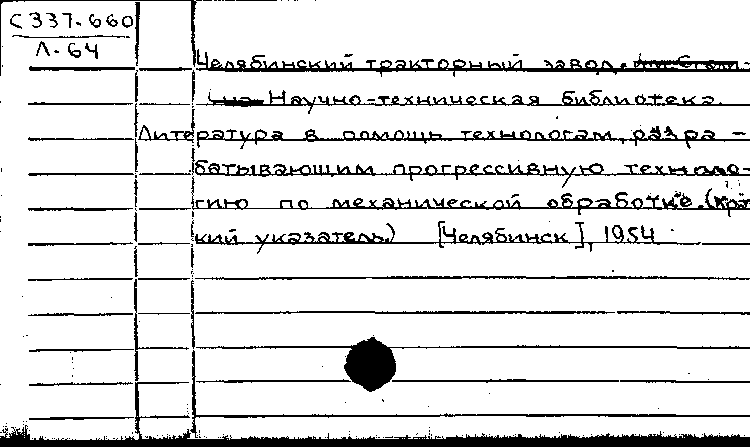 С 337-660
Л-64
Челябинский тракторный завод.
Научно-техническая библиотека.
Литература в помощь технологам, разра-
батывающим прогрессивную техноло-
гию по механической обработке. (Крат
кий указатель.) [Челябинск], 1954